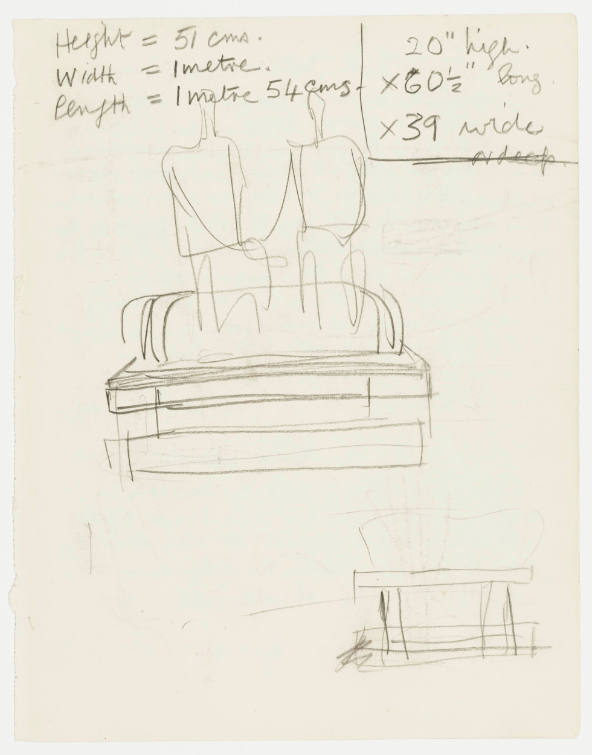 Height = 51 cms.
Width = 1 metre.
Length = 1 metre 54 cms.
20" high.
×60½" long.
×39 wide
or deep.